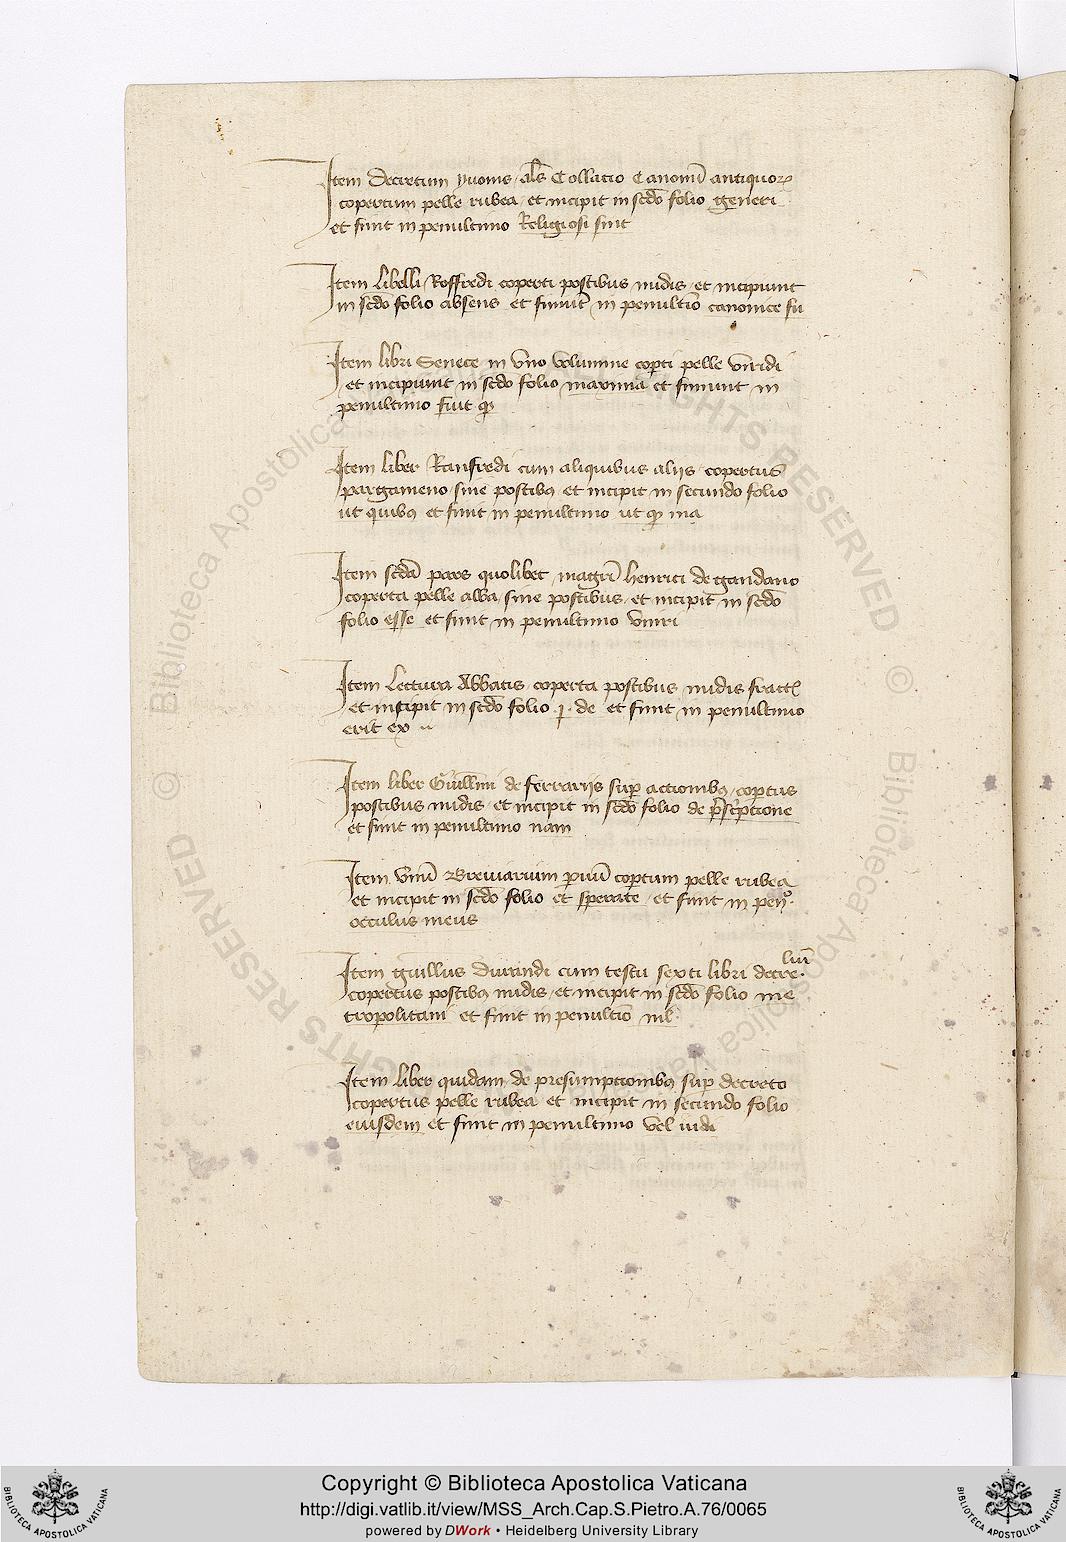 Item Decretum yvonis. als Collatio Canonū antiquoꝝ
copertum pelle rubea. et incipit in scđo folio generi
et finit in penultimo Religiosi sint
Item libelli Roffredi coperti postibus nudis. et incipiunt
in scđo folio absens et finiūt in penultīo canonice su
Item libri Senece in vno volumine coꝑti pelle viridi
et incipiunt in scđo folio maxima et finiunt in
penultimo fiut ꝙ
Item liber Ranfredi cum aliquibus aliis copertus
pargameno sine postibꝰ et incipit in secundo folio
ut quibꝰ et finit in penultimo ut ꝙ ma
Item scđa pars quolibet magr̄i henrici de gandavo
coperta pelle alba sine postibus. et incipit in scđo
folio esse et finit in penultimo vniri
Item Lectura Abbatis coperta postibus nudis fract
et incipit in scđo folio .j. de et finit in penultimo
erit ex
Item liber Guillmi de ferrariis suꝑ actionibꝰ. coꝑtus
postibus nudis. et incipit in scđo folio de p̄sc̄ptione
et finit in penultimo nam
Item vnū Breviarium ꝑuū coꝑtum pelle rubea
et incipit in scđo folio et sperate. et finit in penº.
occulus meus
Item guillus durandi cum testu sexti libri decre.liū
copertus postibꝰ nudis. et incipit in scđo folio me
tropolitani et finit in penultīo nil
Item liber quidam de presumptionibꝰ suꝑ decreto
copertus pelle rubea et incipit in secundo folio
eiusdem et finit in penultimo vel iudi
© Biblioteca Apostolica Vaticana
RIGHTS RESERVED
Copyright © Biblioteca Apostolica Vaticana
http://digi.vatlib.it/view/MSS_Arch.Cap.S.Pietro.A.76/0065
powered by DWork • Heidelberg University Library
BIBLIOTECA APOSTOLICA VATICANA
BIBLIOTECA APOSTOLICA VATICANA